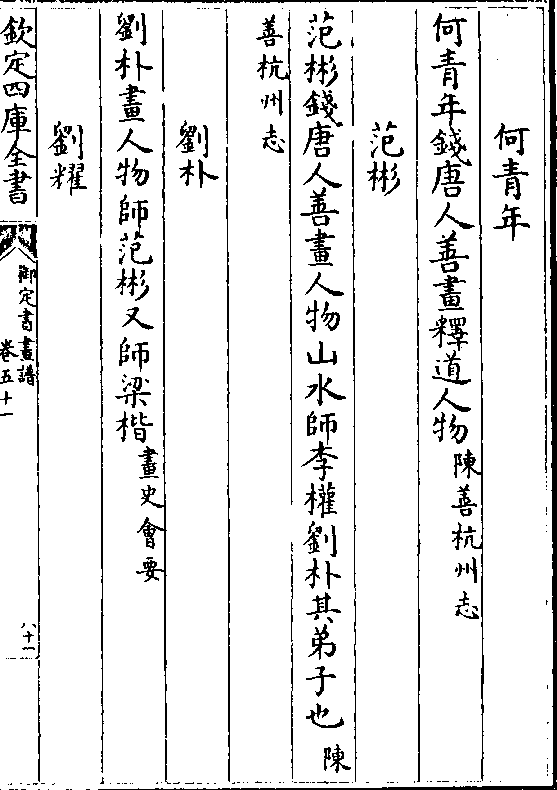 何青年
何青年錢唐人善畫釋道人物陳善杭州志
范彬
范彬錢唐人善畫人物山水師李權劉朴其弟子也陳
善杭州志
劉朴
劉朴畫人物師范彬又師梁楷畫史會要
劉耀
欽定四庫全書
御定書畫譜
卷五十一
八十一